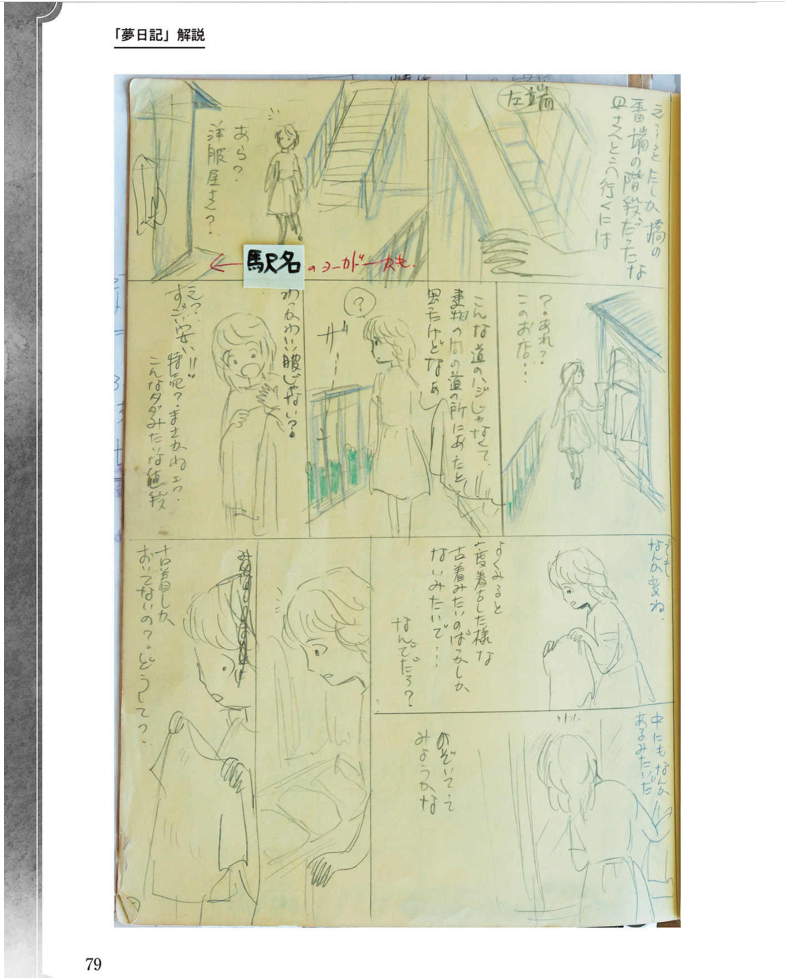 「夢日記」解説
え〜とたしか橋の
一番端の階段だったな
母さんとこへ行くには
左端
あら?
洋服屋さん?
駅名
?あれ?
このお店…
こんな道のハジじゃなくて
建物の間の道の所にあったと
思ったけどなあ
?
わっかわい服じゃない?
え??
すっごい安い!!
特売?まさかねェっ
こんなタダみたいな値段
でも
なんか変ね
よくみると
一度着古した様な
古着みたいのばっかしか
ないみたいで…
なんでだろ?
中にもなんか
あるみたいだ
のぞいて
みようかな
古着しか
おいてないの?どうして?
79